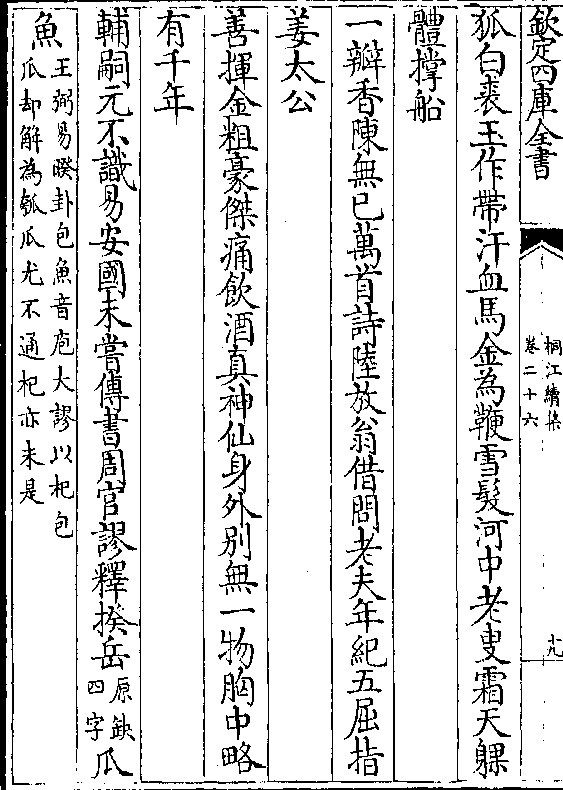 欽定四庫全書
桐江續集
卷二十六
十九
狐白裘玉作帶汗血馬金為鞭雪髮河中老叟霜天躶
體撐船
一瓣香陳無已萬首詩陸放翁借問老夫年紀五屈指
姜太公
善揮金粗豪傑痛飲酒真神仙身外别無一物胸中略
有千年
輔嗣元不識易安國未嘗傳書周官謬釋揆岳原缺四字瓜
魚王弼易暌卦包魚音庖大謬以杞包
瓜却解為瓠瓜尤不通杞亦未是